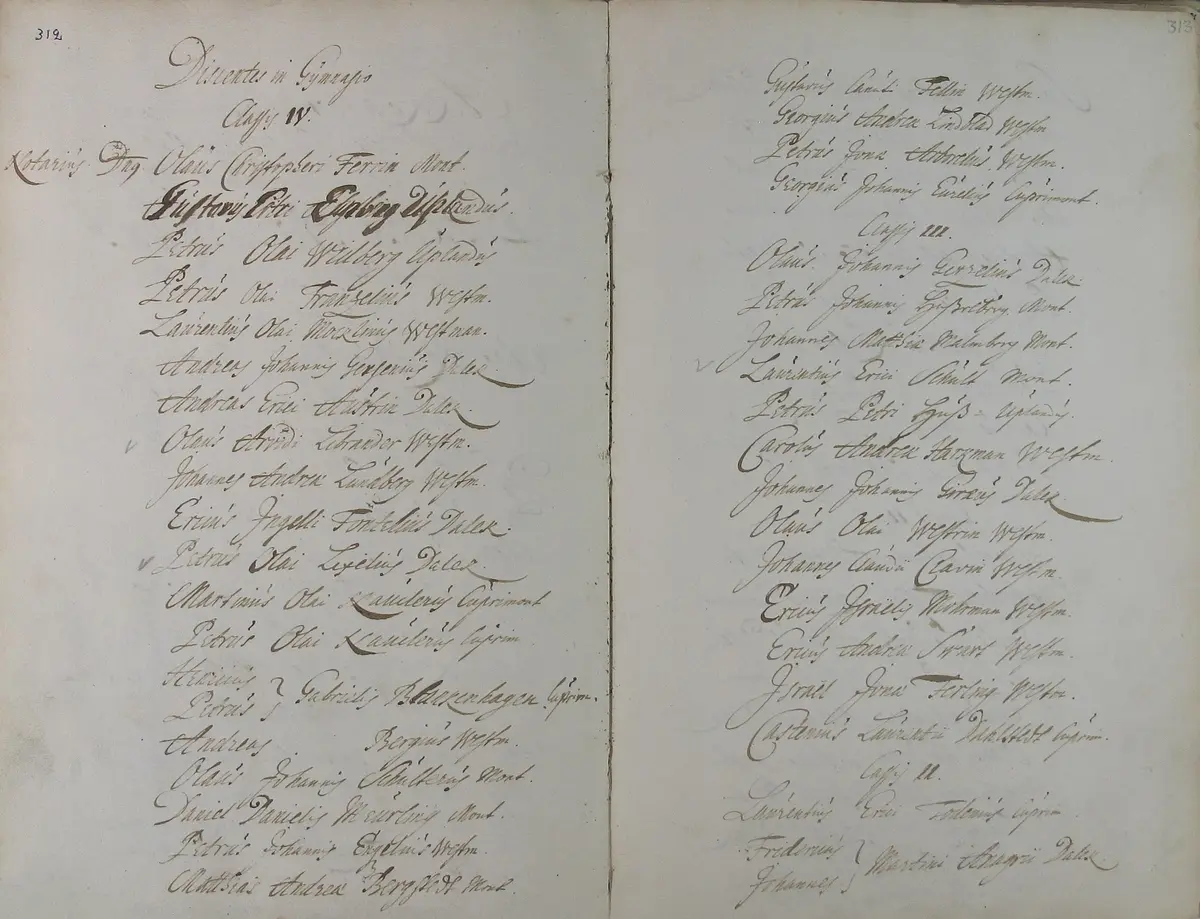 312
Discentes in Gÿmnasio
Classis IV.
Notariús Olaús Christopheri Ferrin Mont.
Gústavús Petri Úplandús.
Petrús Olai Willberg Úplandús
Petrús Olai Franzeliús Westm.
Laúrentiús Olai Moezliniús Westman.
Andreas Johannis Genseniús Dalek.
Andreas Erici Aústrin Dalek.
Olaús Arvidi Librander Westm.
Johannes Andreæ Lúndberg Westm.
Ericús Ingelli Fonteliús Dalek.
Petrús Olai Lixeliús Dalek.
Martinús Olai Naúcleriús Cúprimont
Petrús Olai Naúclerús Cúprim.
Henricús
Petrús } Gabrielis Blanckenhagen Cúprim.
Andreas Bergiús Westm.
Olaús Johannis Schúlteriús Mont.
Daniel Danielis Meúrling Mont.
Petrús Johannis Engeliús Westm.
Matthias Andreæ Bergstedt Mont.
313
Gústavús Canúti Fellin Westm.
Georgiús Andreæ Lindblad Westm
Petrús Jonæ Arboreliús Westm.
Georgiús Johannis Eúreniús Cúprimont.
Classis III.
Olaús Johannis Gezeliús Dalek.
Petrús Johannis Mont.
Johannes Matthiæ Malmberg Mont.
Laúrentiús Erici Schúlt Mont.
Petrús Petri Húß - Úplandús.
Carolús Andreæ Harkman Westm.
Johannes Johannis Girræús Dalek.
Olaús Olai Westrin Westm.
Johannes Claúdii Clavin Westm.
Ericús Israelis Mohrman Westm.
Ericús Andreæ Swart Westm.
Israel Jonæ Ferling Westm.
Castenús Laúrentii Dahlstedt Cúprim.
Classis II.
Laúrentiús Erici Todeniús Cúprim
Fredericús
Johannes } Martini Anagrii Dalek.